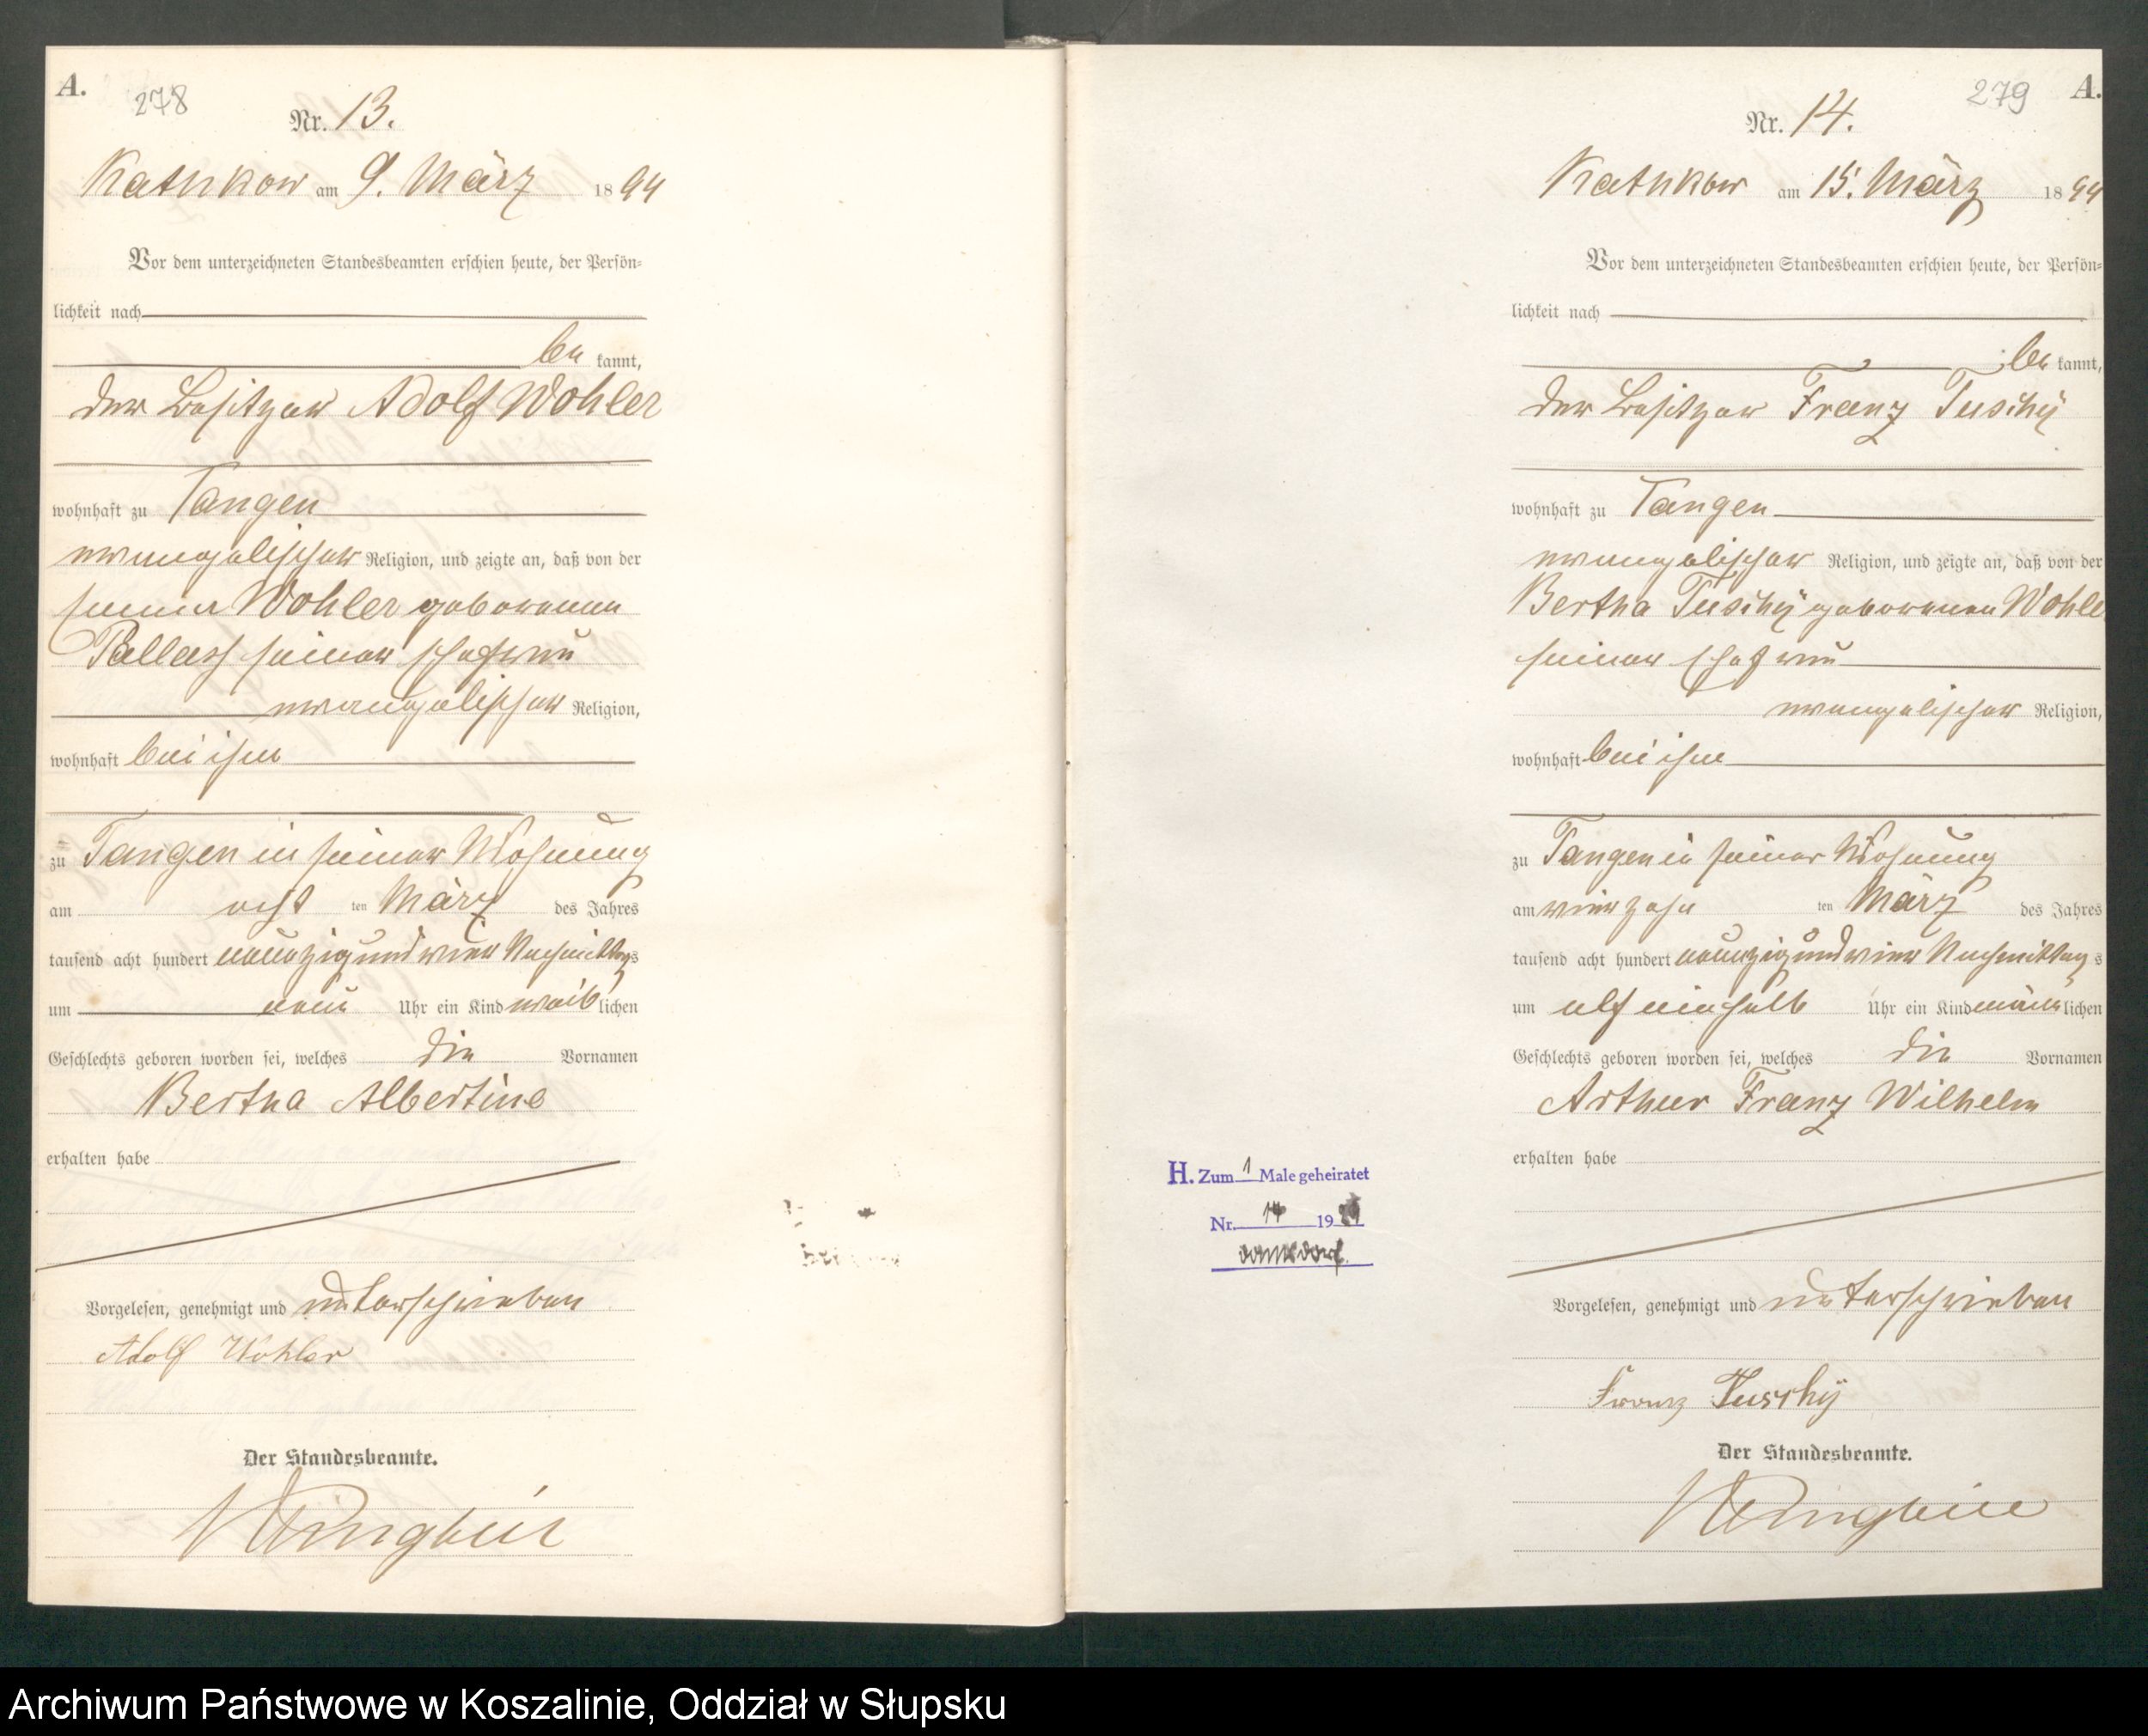 A.
278
Nr. 13.
Kathkow am 9. März 1894
Vor dem unterzeichneten Standesbeamten erschien heute, der Persön=
lichkeit nach
be kannt,
der Besitzer Adolf Wohler
wohnhaft zu Tangen
evangelischer Religion, und zeigte an, daß von der
Wohler geborenen
Pallas seiner Ehefrau
evangelischer Religion,
wohnhaft bei ihm
zu Tangen in seiner Wohnung
am acht ten März des Jahres
tausend acht hundert neunzig und vier Nachmittags
um neun Uhr ein Kind weib lichen
Geschlechts geboren worden sei, welches die Vornamen
Bertha Albertine
erhalten habe
Vorgelesen, genehmigt und unterschrieben
Adolf Wohler
Der Standesbeamte.
279
A.
Nr. 14.
Kathkow am 15. März 1894
Vor dem unterzeichneten Standesbeamten erschien heute, der Persön=
lichkeit nach
be kannt,
der Besitzer Franz Tuschy
wohnhaft zu Tangen
evangelischer Religion, und zeigte an, daß von der
Bertha Tuschy geborenen Wohle
seiner Ehefrau
evangelischer Religion,
wohnhaft bei ihm
zu Tangen in seiner Wohnung
am vierzehn ten März des Jahres
tausend acht hundert neunzig und vier Nachmittag s
um elf einhalb Uhr ein Kind männ lichen
Geschlechts geboren worden sei, welches die Vornamen
Arthur Franz Wilhelm
erhalten habe
H. Zum 1 Male geheiratet
Nr. 14 19
Damsdorf.
Vorgelesen, genehmigt und unterschrieben
Franz Tuschy
Der Standesbeamte.
Archiwum Państwowe w Koszalinie, Oddział w Słupsku